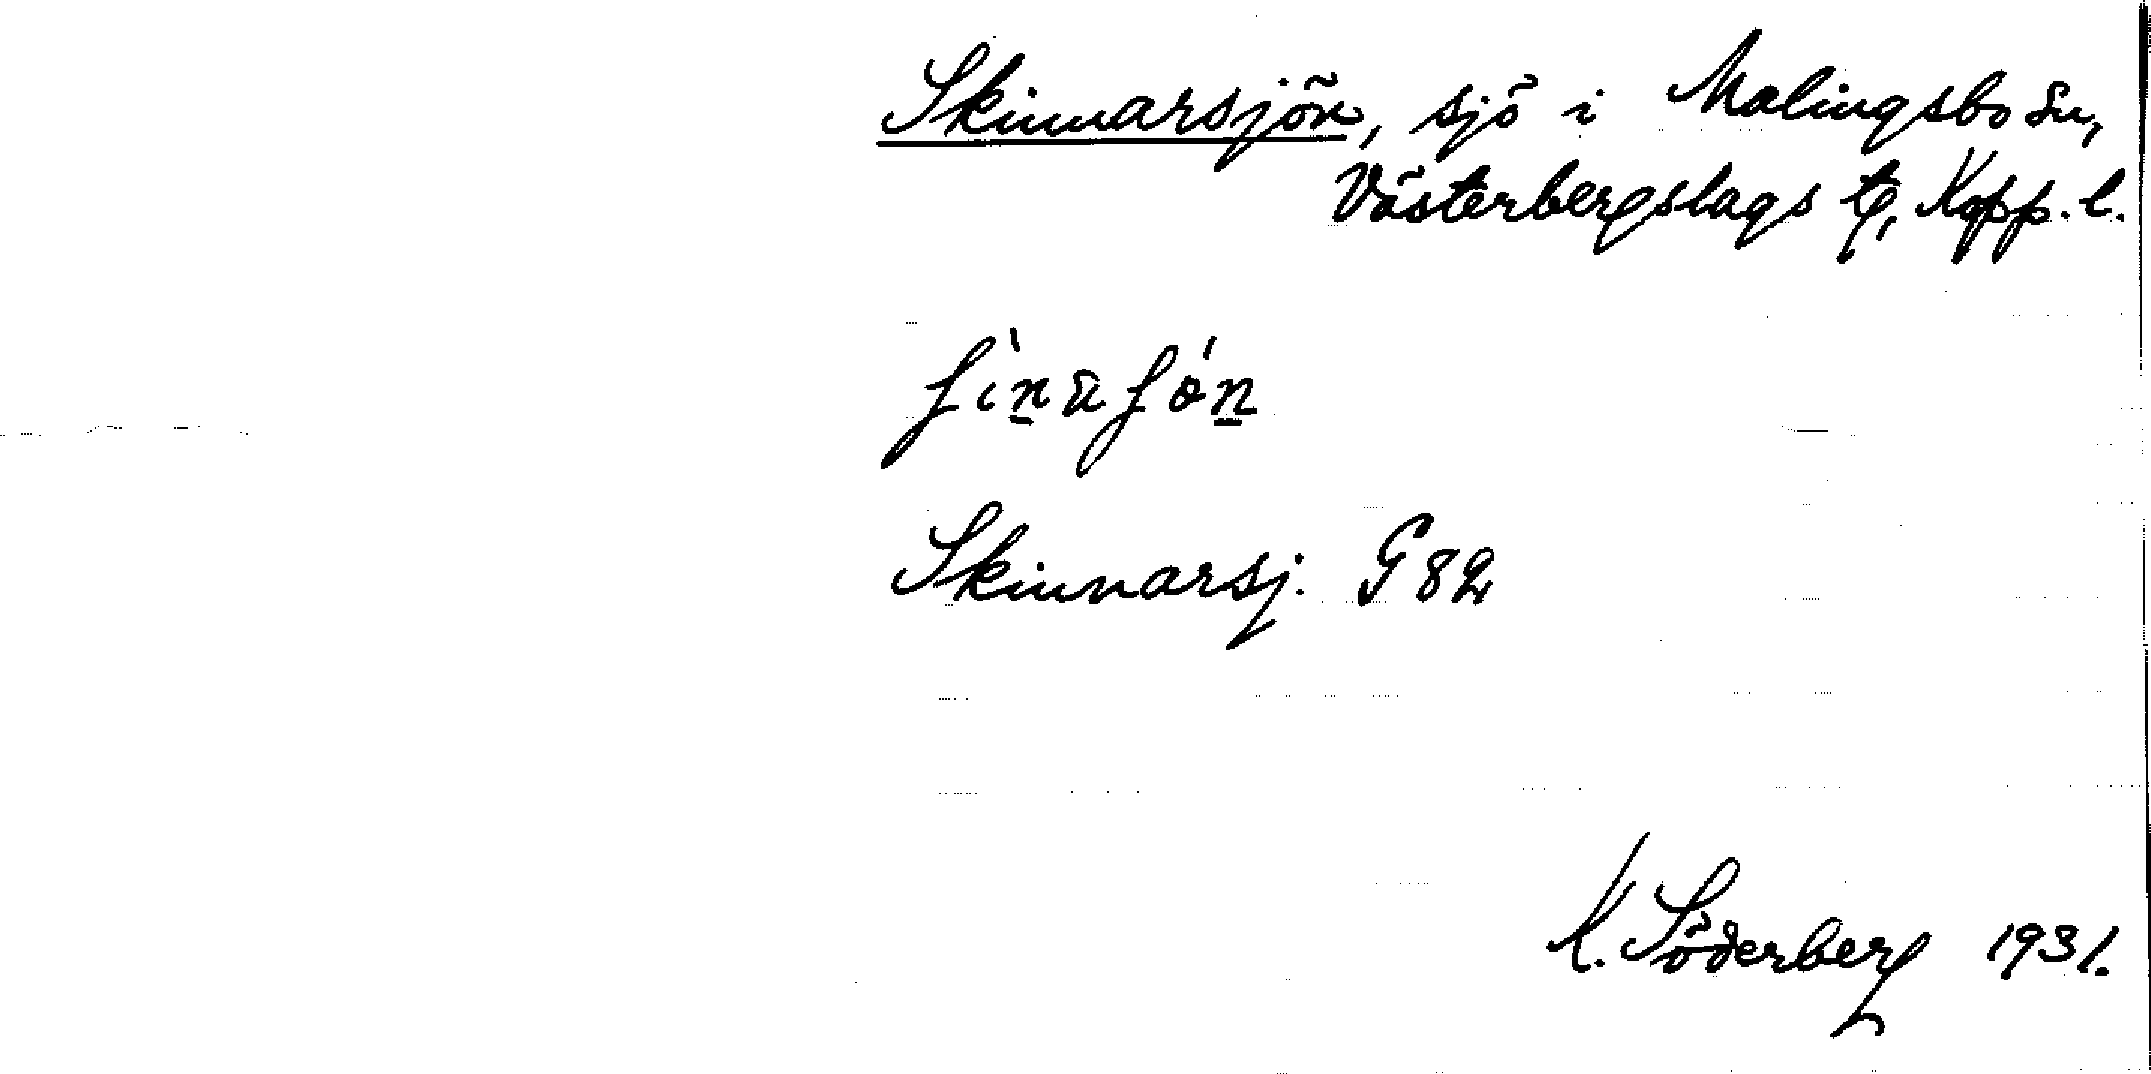 Skinnarsjön, sjö i Malingsbo sn,
Västerbergslags tg, Kopp. l.
Skinnarsj. G 82
K. Söderberg 1931.